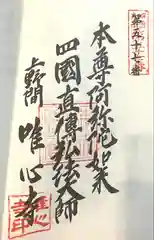 第九十七番
本尊阿弥陀如来
四國直傳弘法大師
上野間
唯心寺